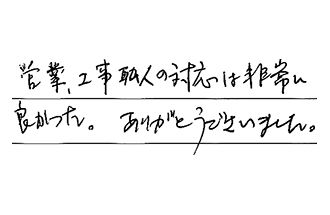 営業、工事職人の対応は非常に
良かった。ありがとうございました。